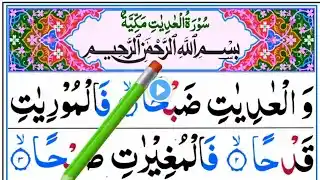 سُوْرَةُ الْعٰدِيٰتِ مَكِّيَّةٌ
بِسْمِ اللّٰهِ الرَّحْمٰنِ الرَّحِيْمِ
وَ الْعٰدِيٰتِ ضَبْحًاۙ۝۱ فَالْمُوْرِيٰتِ
قَدْحًاۙ۝۲ فَالْمُغِيْرٰتِ صُبْحًاۙ۝۳